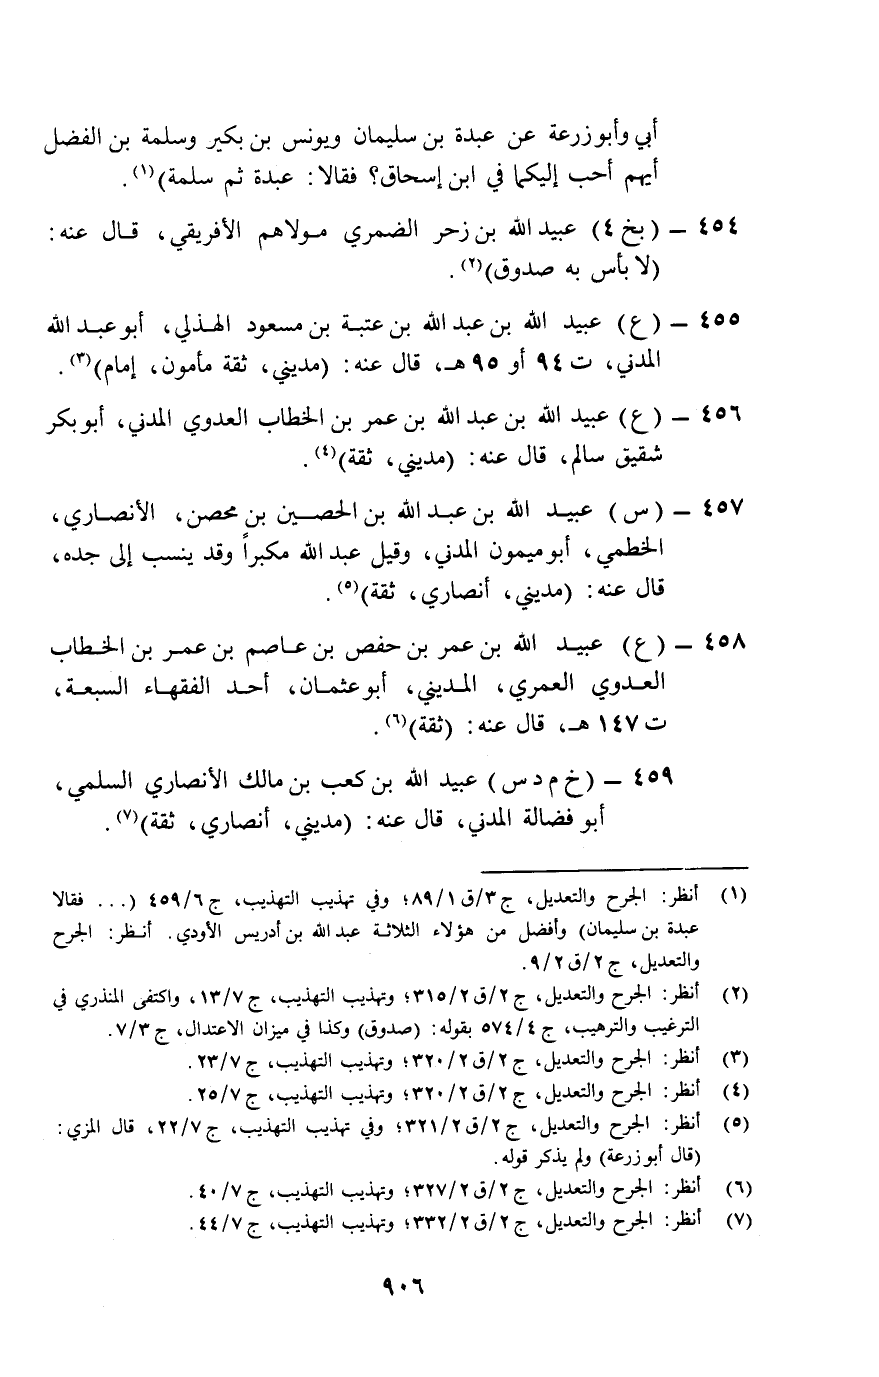 أبي وأبو زرعة عن عبدة بن سليمان ويونس بن بكير وسلمة بن الفضل
أيهم أحب إليكما في ابن إسحاق؟ فقالا: عبدة ثم سلمة)(١).
٤٥٤ – (بخ ٤) عبيد الله بن زحر الضمري مولاهم الأفريقي، قال عنه:
(لا بأس به صدوق)(٢).
٤٥٥ – (ع) عبيد الله بن عبد الله بن عتبة بن مسعود الهذلي، أبو عبد الله
المدني، ت ٩٤ أو ٩٥ هـ، قال عنه: (مديني، ثقة مأمون، إمام)(٣).
٤٥٦ – (ع) عبيد الله بن عبد الله بن عمر بن الخطاب العدوي المدني، أبو بكر
شقيق سالم، قال عنه: (مديني، ثقة)(٤).
٤٥٧ – (س) عبيد الله بن عبد الله بن الحصين بن محصن، الأنصاري،
الخطمي، أبو ميمون المدني، وقيل عبد الله مكبراً وقد ينسب إلى جده،
قال عنه: (مديني، أنصاري، ثقة)(٥).
٤٥٨ – (ع) عبيد الله بن عمر بن حفص بن عاصم بن عمر بن الخطاب
العدوي العمري، المديني، أبو عثمان، أحد الفقهاء السبعة،
ت ١٤٧ هـ، قال عنه: (ثقة)(٦).
٤٥٩ – (خ م د س) عبيد الله بن كعب بن مالك الأنصاري السلمي،
أبو فضالة المدني، قال عنه: (مديني، أنصاري، ثقة)(٧).
(١) أنظر: الجرح والتعديل، ج ٣/ق ٨٩/١؛ وفي تهذيب التهذيب، ج ٤٥٩/٦ (... فقالا
عبدة بن سليمان) وأفضل من هؤلاء الثلاثة عبد الله بن أدريس الأودي. أنظر: الجرح
والتعديل، ج ٢/ق ٩/٢.
(٢) أنظر: الجرح والتعديل، ج ٢/ق ٣١٥/٢؛ وتهذيب التهذيب، ج ١٣/٧، واكتفى المنذري في
الترغيب والترهيب، ج ٥٧٤/٤ بقوله: (صدوق) وكذا في ميزان الاعتدال، ج ٧/٣.
(٣) أنظر: الجرح والتعديل، ج ٢/ق ٣٢٠/٢؛ وتهذيب التهذيب، ج ٢٣/٧.
(٤) أنظر: الجرح والتعديل، ج ٢/ق ٣٢٠/٢؛ وتهذيب التهذيب، ج ٢٥/٧.
(٥) أنظر: الجرح والتعديل، ج ٢/ق ٣٢١/٢؛ وفي تهذيب التهذيب، ج ٢٢/٧، قال المزي:
(قال أبو زرعة) ولم يذكر قوله.
(٦) أنظر: الجرح والتعديل، ج ٢/ق ٣٢٧/٢؛ وتهذيب التهذيب، ج ٤٠/٧.
(٧) أنظر: الجرح والتعديل، ج ٢/ق ٣٣٢/٢؛ وتهذيب التهذيب، ج ٤٤/٧.
٩٠٦